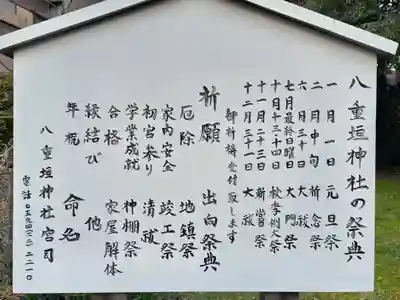 八重垣神社の祭典
一月一日 元旦祭
二月中旬 祈念祭
六月三十日 大祓
七月最終日曜日 大門祭
十月十三・十四日 秋季例大祭
十一月二十三日 新嘗祭
十二月三十一日 大祓
御祈祷受付致します
祈願 出向祭典
厄除 地鎮祭
家内安全 竣工祭
初宮参り 清祓
学業成就 神棚祭
合格 家屋解体
縁結び 他
年祝 命名
八重垣神社宮司